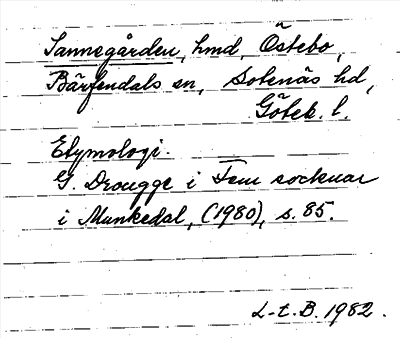 Sannegården, hmd, Östebo,
Bärfendals sn, Sotenäs hd,
Göteb. l.
Etymologi.
G. Drougge i Fem socknar
i Munkedal, (1980), s. 85.
L-t. B. 1982.